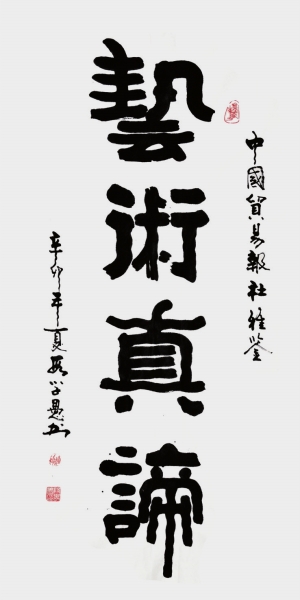 中國貿易報社雅鑒
藝術真諦
辛卯年夏